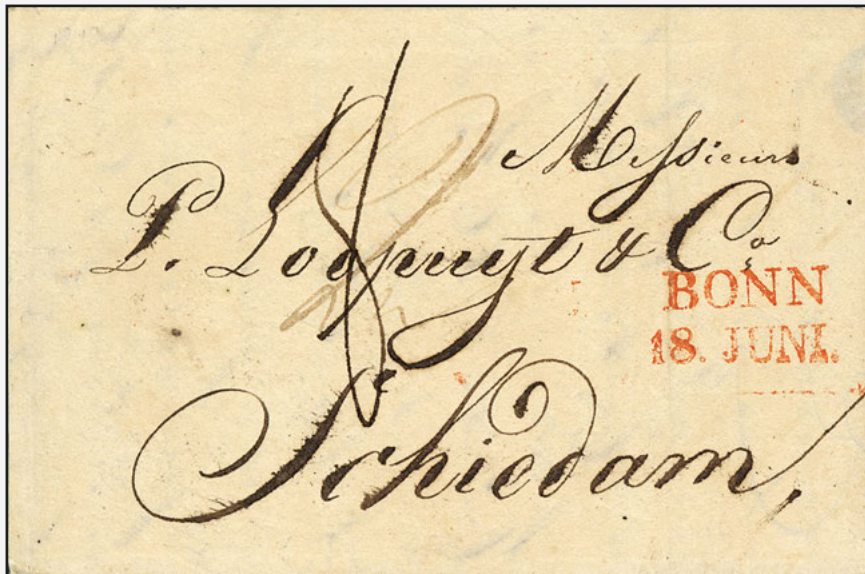 Messieurs
P. Loopuyt & Co
BONN
18. JUNI.
Schiedam,